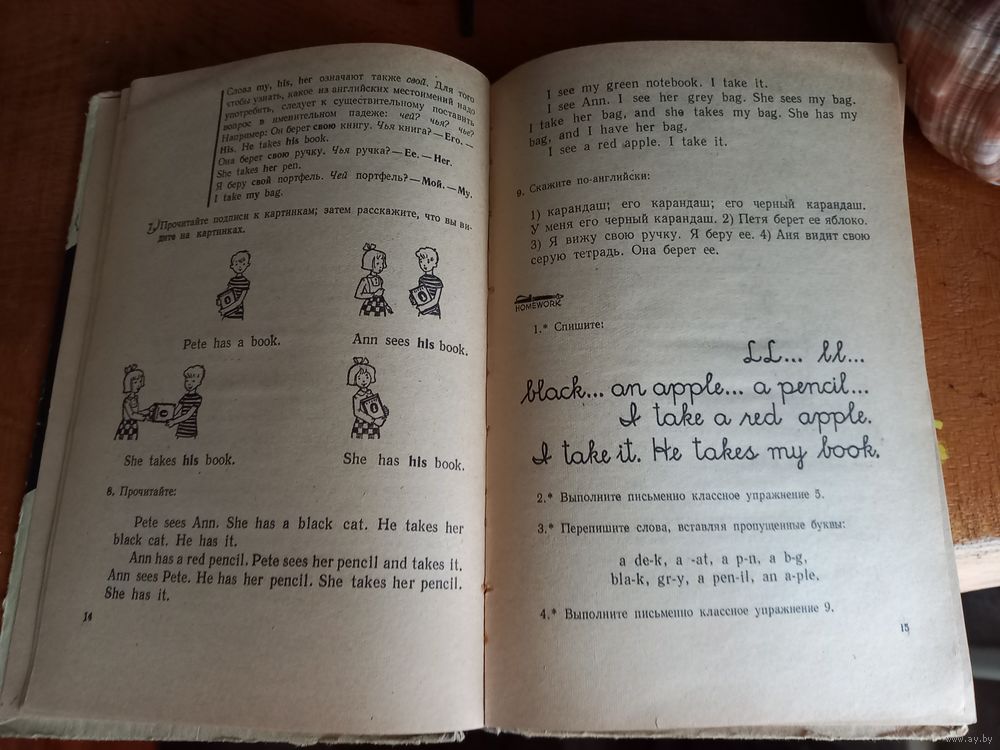 Слова my, his, her означают также свой. Для того
чтобы узнать, какое из английских местоимений надо
употребить, следует к существительному поставить
вопрос в именительном падеже: чей? чья? чье?
Например: Он берет свою книгу. Чья книга? — Его. —
His. He takes his book.
Она берет свою ручку. Чья ручка? — Ее. — Her.
She takes her pen.
Я беру свой портфель. Чей портфель? — Мой. — My.
I take my bag.
7. Прочитайте подписи к картинкам; затем расскажите, что вы ви-
дите на картинках.
Pete has a book.
Ann sees his book.
She takes his book.
She has his book.
8. Прочитайте:
Pete sees Ann. She has a black cat. He takes her
black cat. He has it.
Ann has a red pencil. Pete sees her pencil and takes it.
Ann sees Pete. He has her pencil. She takes her pencil.
She has it.
14
I see my green notebook. I take it.
I see Ann. I see her grey bag. She sees my bag.
I take her bag, and she takes my bag. She has my
bag, and I have her bag.
I see a red apple. I take it.
9. Скажите по-английски:
1) карандаш; его карандаш; его черный карандаш.
У меня его черный карандаш. 2) Петя берет ее яблоко.
3) Я вижу свою ручку. Я беру ее. 4) Аня видит свою
серую тетрадь. Она берет ее.
HOMEWORK
1.* Спишите:
LL... ll...
black... an apple... a pencil...
I take a red apple.
I take it. He takes my book.
2.* Выполните письменно классное упражнение 5.
3.* Перепишите слова, вставляя пропущенные буквы:
a de-k, a -at, a p-n, a b-g,
bla-k, gr-y, a pen-il, an a-ple.
4.* Выполните письменно классное упражнение 9.
15
www.ay.by